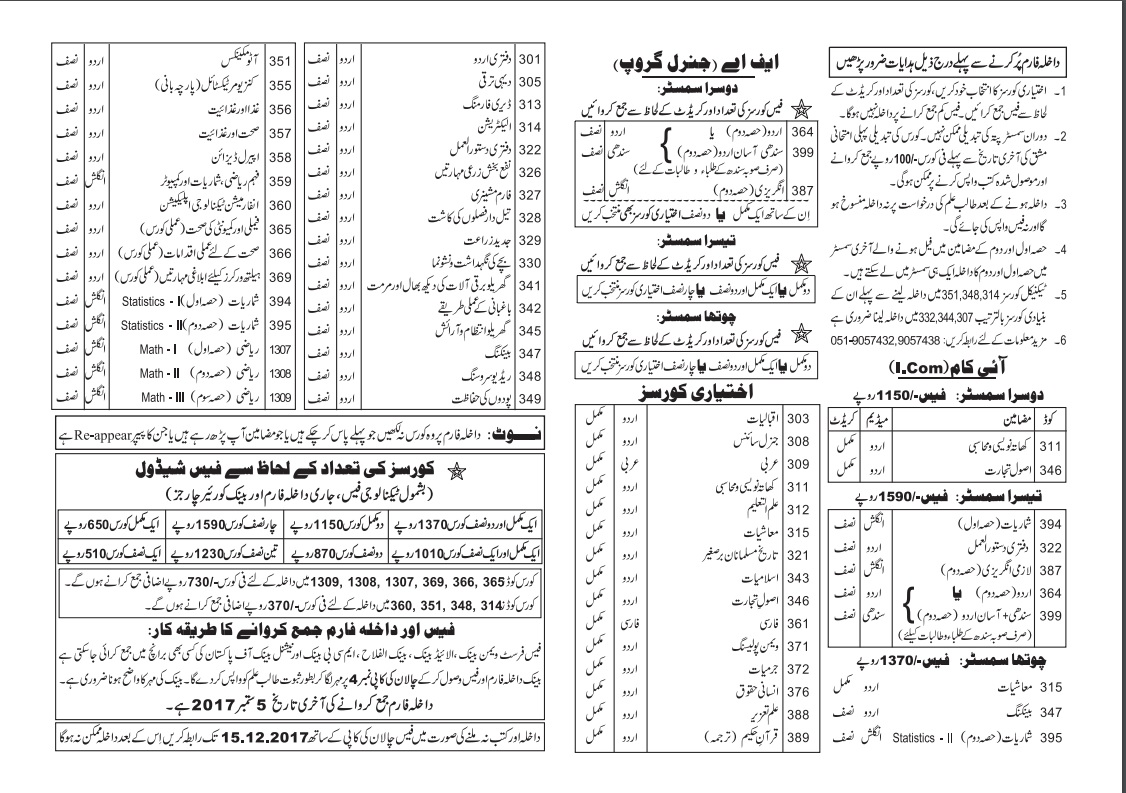 داخلہ فارم پُر کرنے سے پہلے درج ذیل ہدایات ضرور پڑھیں
1۔ اختیاری کورسز کا انتخاب خود کریں، کورسز کی تعداد اور کریڈٹ کے
لحاظ سے فیس جمع کرائیں۔ فیس کم جمع کرانے پر داخلہ نہیں ہوگا۔
2۔ دوران سمسٹر پتہ کی تبدیلی ممکن نہیں۔ کورس کی تبدیلی پہلی امتحانی
مشق کی آخری تاریخ سے پہلے فی کورس -/100 روپے جمع کروانے
اور موصول شدہ کتب واپس کرنے پر ممکن ہوگی۔
3۔ داخلہ ہونے کے بعد طالب علم کی درخواست پر نہ داخلہ منسوخ ہو
گا اور نہ فیس واپس کی جائے گی۔
4۔ حصہ اول اور دوم کے مضامین میں فیل ہونے والے آخری سمسٹر
میں حصہ اول اور دوم کا داخلہ ایک ہی سمسٹر میں لے سکتے ہیں۔
5۔ ٹیکنیکل کورسز 351,348,314 میں داخلہ لینے سے پہلے ان کے
بنیادی کورسز بالترتیب 332,344,307 میں داخلہ لینا ضروری ہے
6۔ مزید معلومات کے لئے رابطہ کریں: 051-9057432,9057438
آئی کام (I.Com)
دوسرا سمسٹر: فیس -/1150 روپے
کوڈ مضامین میڈیم کریڈٹ
311 کھاتہ نویسی و محاسبی اردو مکمل
346 اصول تجارت اردو مکمل
تیسرا سمسٹر: فیس -/1590 روپے
394 شماریات (حصہ اول) انگلش نصف
322 دفتری دستور العمل اردو نصف
387 لازمی انگریزی (حصہ دوم) انگلش نصف
364 اردو (حصہ دوم) یا اردو نصف
399 سندھی + آسان اردو (حصہ دوم) سندھی نصف
(صرف صوبہ سندھ کے طلباء و طالبات کیلئے)
چوتھا سمسٹر: فیس -/1370 روپے
315 معاشیات اردو مکمل
347 بینکنگ اردو نصف
395 شماریات (حصہ دوم) Statistics - II انگلش نصف
ایف اے (جنرل گروپ)
دوسرا سمسٹر:
فیس کورسز کی تعداد اور کریڈٹ کے لحاظ سے جمع کروائیں
364 اردو (حصہ دوم) یا اردو نصف
399 سندھی آسان اردو (حصہ دوم) سندھی نصف
(صرف صوبہ سندھ کے طلباء و طالبات کے لئے)
387 انگریزی (حصہ دوم) انگلش نصف
اِن کے ساتھ ایک مکمل یا دو نصف اختیاری کورسز بھی منتخب کریں
تیسرا سمسٹر:
فیس کورسز کی تعداد اور کریڈٹ کے لحاظ سے جمع کروائیں
دو مکمل یا ایک مکمل اور دو نصف یا چار نصف اختیاری کورسز منتخب کریں
چوتھا سمسٹر:
فیس کورسز کی تعداد اور کریڈٹ کے لحاظ سے جمع کروائیں
دو مکمل یا ایک مکمل اور دو نصف یا چار نصف اختیاری کورسز منتخب کریں
اختیاری کورسز
303 اقبالیات اردو مکمل
308 جنرل سائنس اردو مکمل
309 عربی عربی مکمل
311 کھاتہ نویسی و محاسبی اردو مکمل
312 علم التعلیم اردو مکمل
315 معاشیات اردو مکمل
321 تاریخ مسلمانان برصغیر اردو مکمل
343 اسلامیات اردو مکمل
346 اصول تجارت اردو مکمل
361 فارسی فارسی مکمل
371 ویمن پولیسنگ اردو مکمل
372 جرمیات اردو مکمل
376 انسانی حقوق اردو مکمل
388 علم تعزیر اردو مکمل
389 قرآن حکیم (ترجمہ) اردو مکمل
301 دفتری اردو اردو نصف
305 دیہی ترقی اردو نصف
313 ڈیری فارمنگ اردو نصف
314 الیکٹریشن اردو نصف
322 دفتری دستور العمل اردو نصف
326 نفع بخش زرعی مہارتیں اردو نصف
327 فارم مشینری اردو نصف
328 تیل دار فصلوں کی کاشت اردو نصف
329 جدید زراعت اردو نصف
330 بچے کی نگہداشت و نشوونما اردو نصف
341 گھریلو برقی آلات کی دیکھ بھال اور مرمت اردو نصف
342 باغبانی کے عملی طریقے اردو نصف
345 گھریلو انتظام و آرائش اردو نصف
347 بینکنگ اردو نصف
348 ریڈیو سروسنگ اردو نصف
349 پودوں کی حفاظت اردو نصف
351 آٹو مکینکس اردو نصف
355 کنزیومر ٹیکسٹائل (پارچہ بانی) اردو نصف
356 غذا اور غذائیت اردو نصف
357 صحت اور غذائیت اردو نصف
358 اپیرل ڈیزائن اردو نصف
359 فہم ریاضی، شماریات اور کمپیوٹر انگلش نصف
360 انفارمیشن ٹیکنالوجی اپلیکیشن اردو نصف
365 فیملی اور کمیونٹی کی صحت (عملی کورس) اردو نصف
366 صحت کے لئے عملی اقدامات (عملی کورس) اردو نصف
369 ہیلتھ ورکرز کیلئے ابلاغی مہارتیں (عملی کورس) اردو نصف
394 شماریات (حصہ اول) Statistics - I انگلش نصف
395 شماریات (حصہ دوم) Statistics - II انگلش نصف
1307 ریاضی (حصہ اول) Math - I انگلش نصف
1308 ریاضی (حصہ دوم) Math - II انگلش نصف
1309 ریاضی (حصہ سوم) Math - III انگلش نصف
نوٹ: داخلہ فارم پر وہ کورس نہ لکھیں جو پہلے پاس کر چکے ہیں یا جو مضامین آپ پڑھ رہے ہیں یا جن کا پیپر Re-appear ہے
کورسز کی تعداد کے لحاظ سے فیس شیڈول
(بشمول ٹیکنالوجی فیس، جاری داخلہ فارم اور بینک کورئیر چارجز)
ایک مکمل اور دو نصف کورس 1370 روپے دو مکمل کورس 1150 روپے چار نصف کورس 1590 روپے ایک مکمل کورس 650 روپے
ایک مکمل اور ایک نصف کورس 1010 روپے دو نصف کورس 870 روپے تین نصف کورس 1230 روپے ایک نصف کورس 510 روپے
کورس کوڈ 365, 366, 369, 1307, 1308, 1309 میں داخلہ کے لئے فی کورس -/730 روپے اضافی جمع کرانے ہوں گے۔
کورس کوڈ: 314, 348, 351, 360 میں داخلہ کے لئے فی کورس -/370 روپے اضافی جمع کرانے ہوں گے۔
فیس اور داخلہ فارم جمع کروانے کا طریقہ کار:
فیس فرسٹ ویمن بینک، الائیڈ بینک، بینک الفلاح، ایم سی بی بینک اور نیشنل بینک آف پاکستان کی کسی بھی برانچ میں جمع کرائی جا سکتی ہے
بینک داخلہ فارم اور فیس وصول کر کے چالان کی کاپی نمبر 4 پر مہر لگا کر بطور ثبوت طالب علم کو واپس کر دے گا۔ بینک کی مہر کا واضح ہونا ضروری ہے۔
داخلہ فارم جمع کروانے کی آخری تاریخ 5 ستمبر 2017 ہے۔
داخلہ اور کتب نہ ملنے کی صورت میں فیس چالان کی کاپی کے ساتھ 15.12.2017 تک رابطہ کریں اِس کے بعد داخلہ ممکن نہ ہوگا